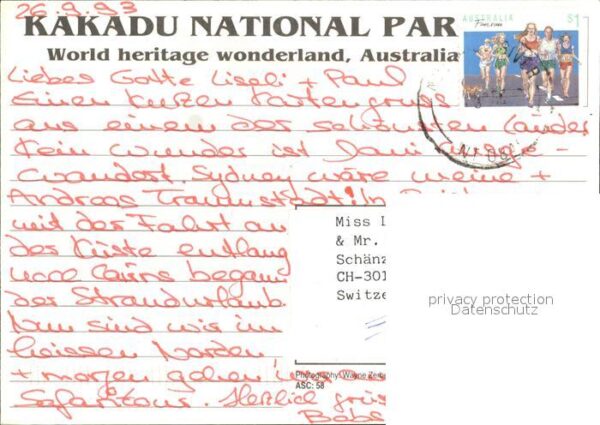 26.9.93
KAKADU NATIONAL PAR
World heritage wonderland, Australia
AUSTRALIA $1
Fun run
Liebes Gotte Liseli + Paul
Einen kurzen Kartengruss
aus einem der schönsten Länder
Kein Wunder ist Dani ausge-
wandert. Sydney wäre meine +
Andreas Traumstadt! In
mit der Fahrt an
der Küste entlang
nach Cairns begann
der Strandurlaub.
Nun sind wir im
heissen Norden
+ morgen gehen
Safaritour. Herzlich
Babs
Miss
& Mr.
Schänz
CH-301
Switze
privacy protection
Datenschutz
Photography: Wayne
ASC: 58